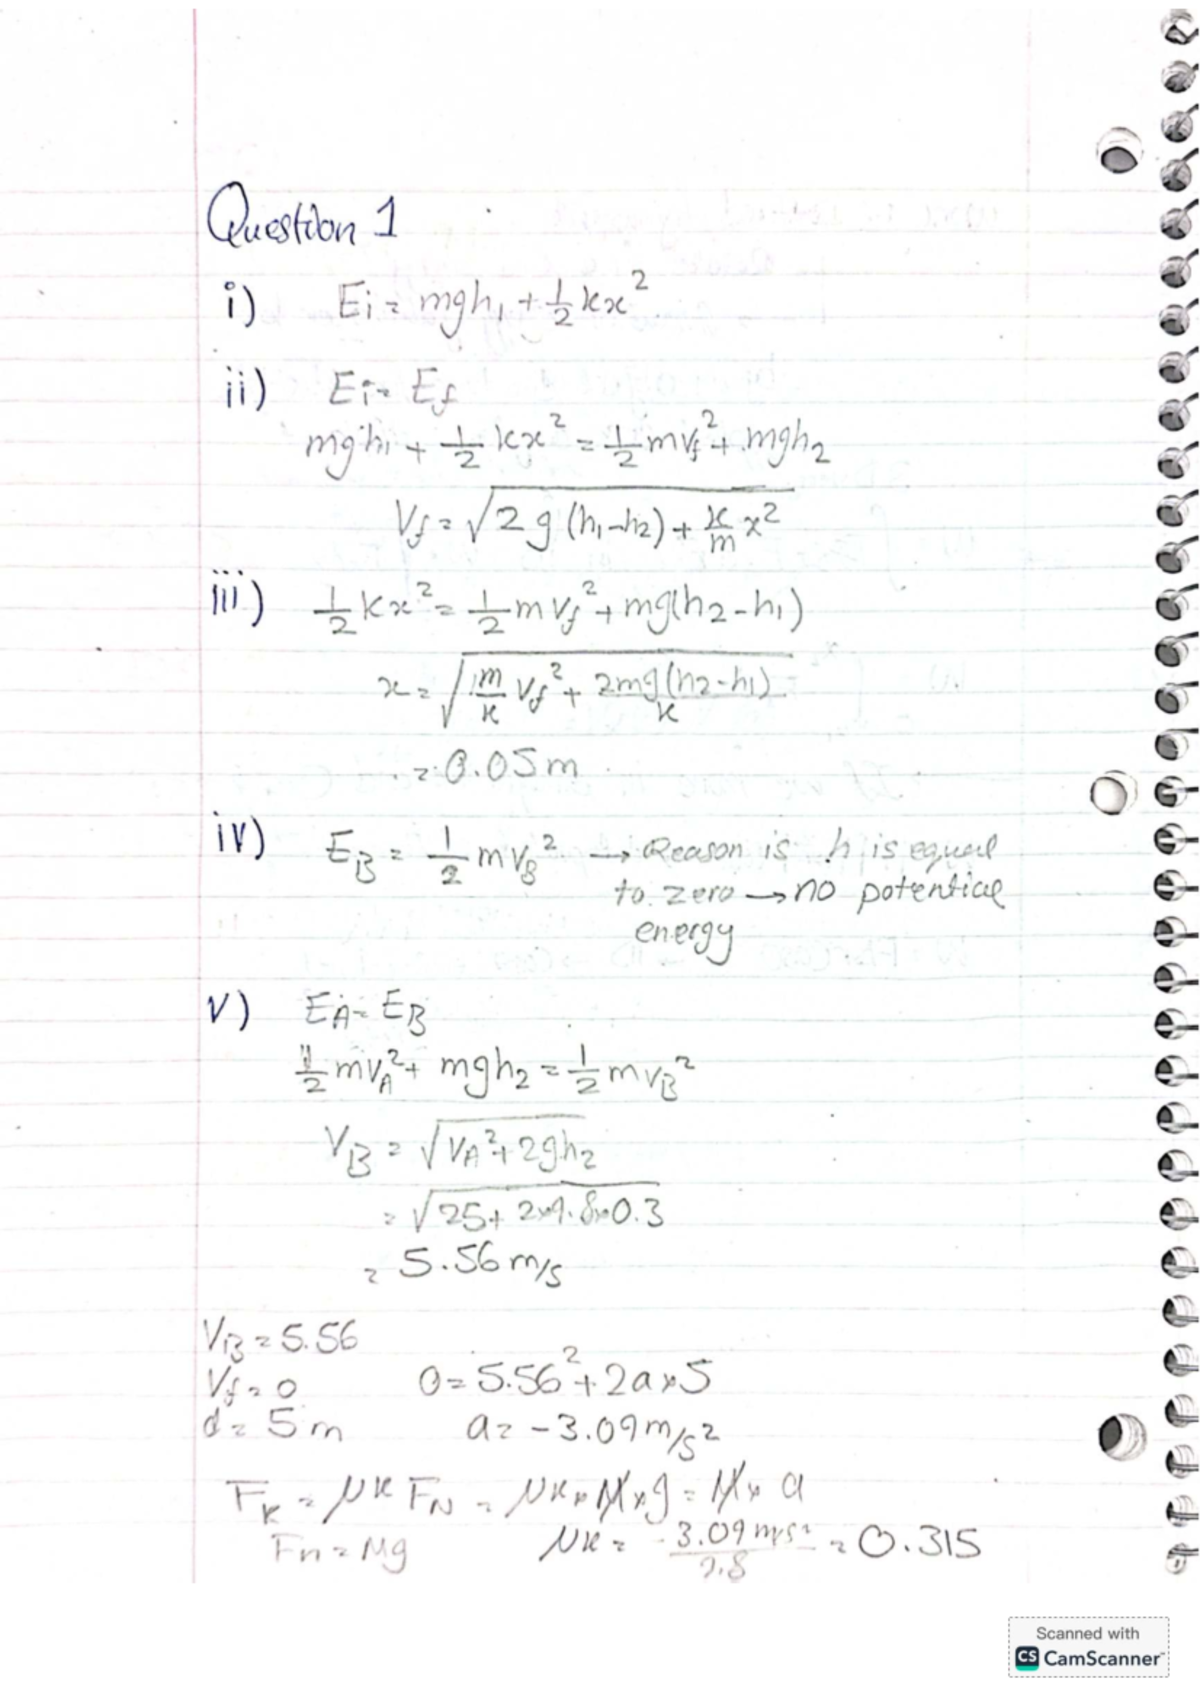 Question 1
i) Ei = mgh₁ + 1/2 kx²
ii) Ei = Ef
mgh₁ + 1/2 kx² = 1/2 mvf² + mgh₂
Vf = √(2g(h₁-h₂) + k/m x²)
iii) 1/2 kx² = 1/2 mVf² + mg(h₂-h₁)
x = √(m/k Vf² + 2mg(h₂-h₁)/k)
= 0.05m
iv) EB = 1/2 mvB² → Reason is h is equal
to zero → no potential
energy
v) EA = EB
1/2 mvA² + mgh₂ = 1/2 mvB²
VB = √(VA² + 2gh₂)
= √(25 + 2×9.8×0.3)
= 5.56 m/s
VB = 5.56
Vf = 0 0 = 5.56² + 2a×5
d = 5m a = -3.09 m/s²
Fk = μk FN = μk × M × g = M × a
Fn = Mg μk = -3.09 m/s²/9.8 = 0.315
Scanned with
CS CamScanner